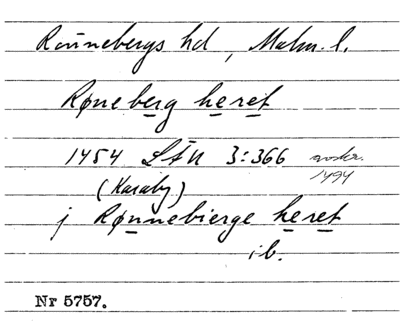 Rönnebergs hd, Malm. l.
Røneberg heret
1454 LÄU 3:366 avskr.
(Karaby) 1494
j Rønnebierge heret
ib.
Nr 5757.